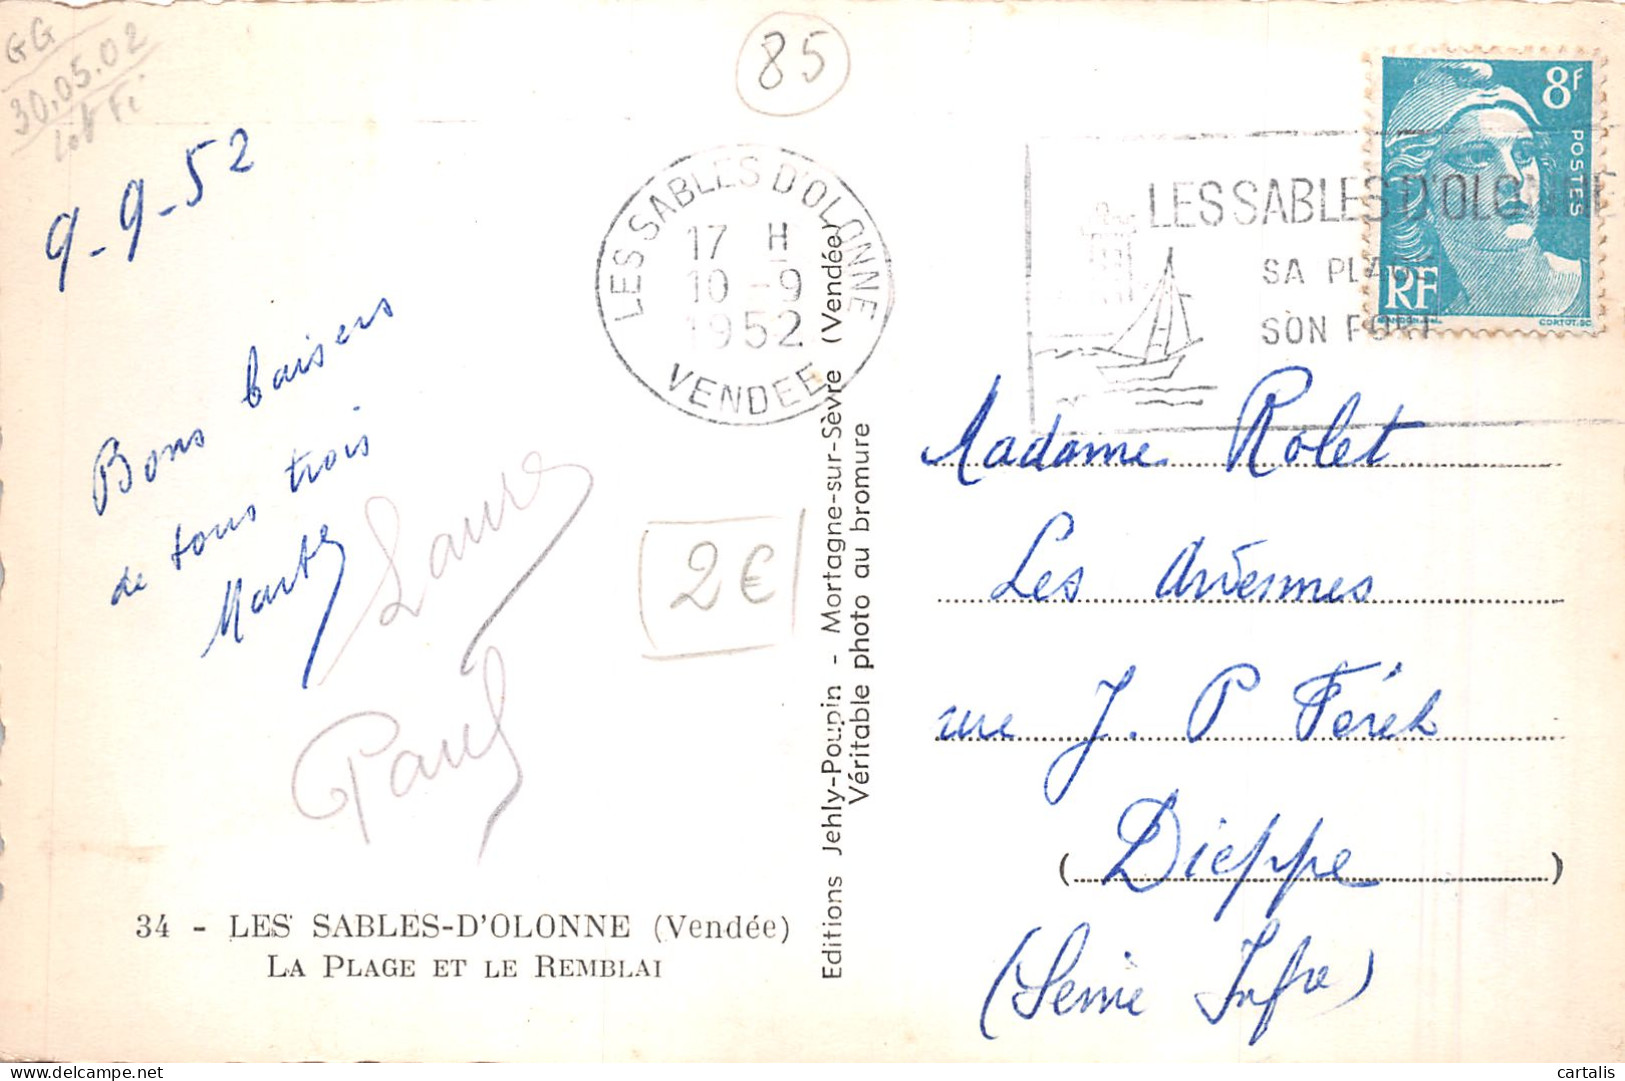 GG
30.05.02
Lot Fi
85
9-9-52
Bons baisers
de tous trois
Marthe
Laure
Paul
2€
34 - LES SABLES-D'OLONNE (Vendée)
LA PLAGE ET LE REMBLAI
LES SABLES D'OLONNE
17 H
10 -9
1952
VENDEE
Editions Jehly-Poupin - Mortagne-sur-Sèvre (Vendée)
Véritable photo au bromure
LES SABLES D'OLONNE
SA PLAGE
SON PORT
8F
POSTES
RF
GANDON DEL.
CORTOT.SC
Madame Rolet
Les Arvennes
rue J. P Féret
(Dieppe)
(Seine Infre)
cartalis
delcampe.net